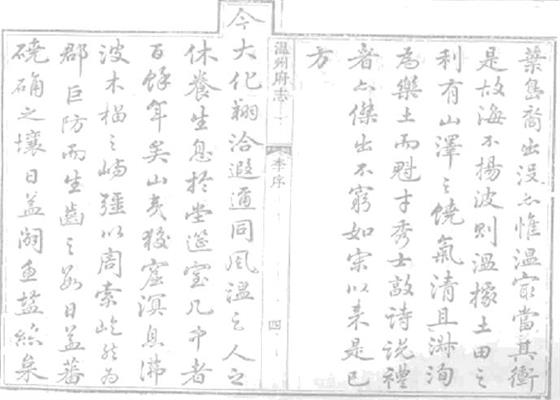 島裔出没亦惟溫實當其衝
是故海不揚波則溫據土田之
利有山澤之饒氣清且淑洵
為樂土而魁才秀士敦詩說禮
者亦傑出不窮如宋以來是已
方
温州府志
李序
四
今大化翔洽遐邇同風溫之人之
休養生息於堂筵室几中者
百餘年矣山夷狡窟溟息沸
波木榴之嶠疆以周索屹然為
郡巨防而生齒之數日益蕃
磽确之壤日益闢魚鹽絲枲